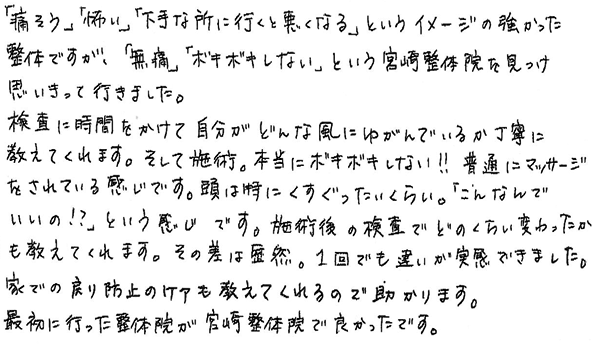 「痛そう」「怖い」「下手な所に行くと悪くなる」というイメージの強かった
整体ですが、「無痛」「ボキボキしない」という宮崎整体院を見つけ
思いきって行きました。
検査に時間をかけて自分がどんな風にゆがんでいるか丁寧に
教えてくれます。そして施術。本当にボキボキしない!! 普通にマッサージ
をされている感じです。頭は特にくすぐったいくらい。「こんなんで
いいの!?」という感じです。施術後の検査でどのくらい変わったか
も教えてくれます。その差は歴然。1回でも違いが実感できました。
家での戻り防止のケアも教えてくれるので助かります。
最初に行った整体院が宮崎整体院で良かったです。